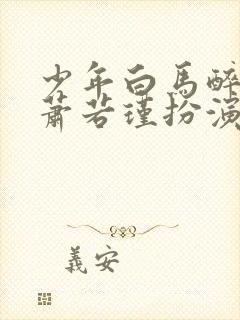 少年白馬醉
蕭若瑾扮演
義安